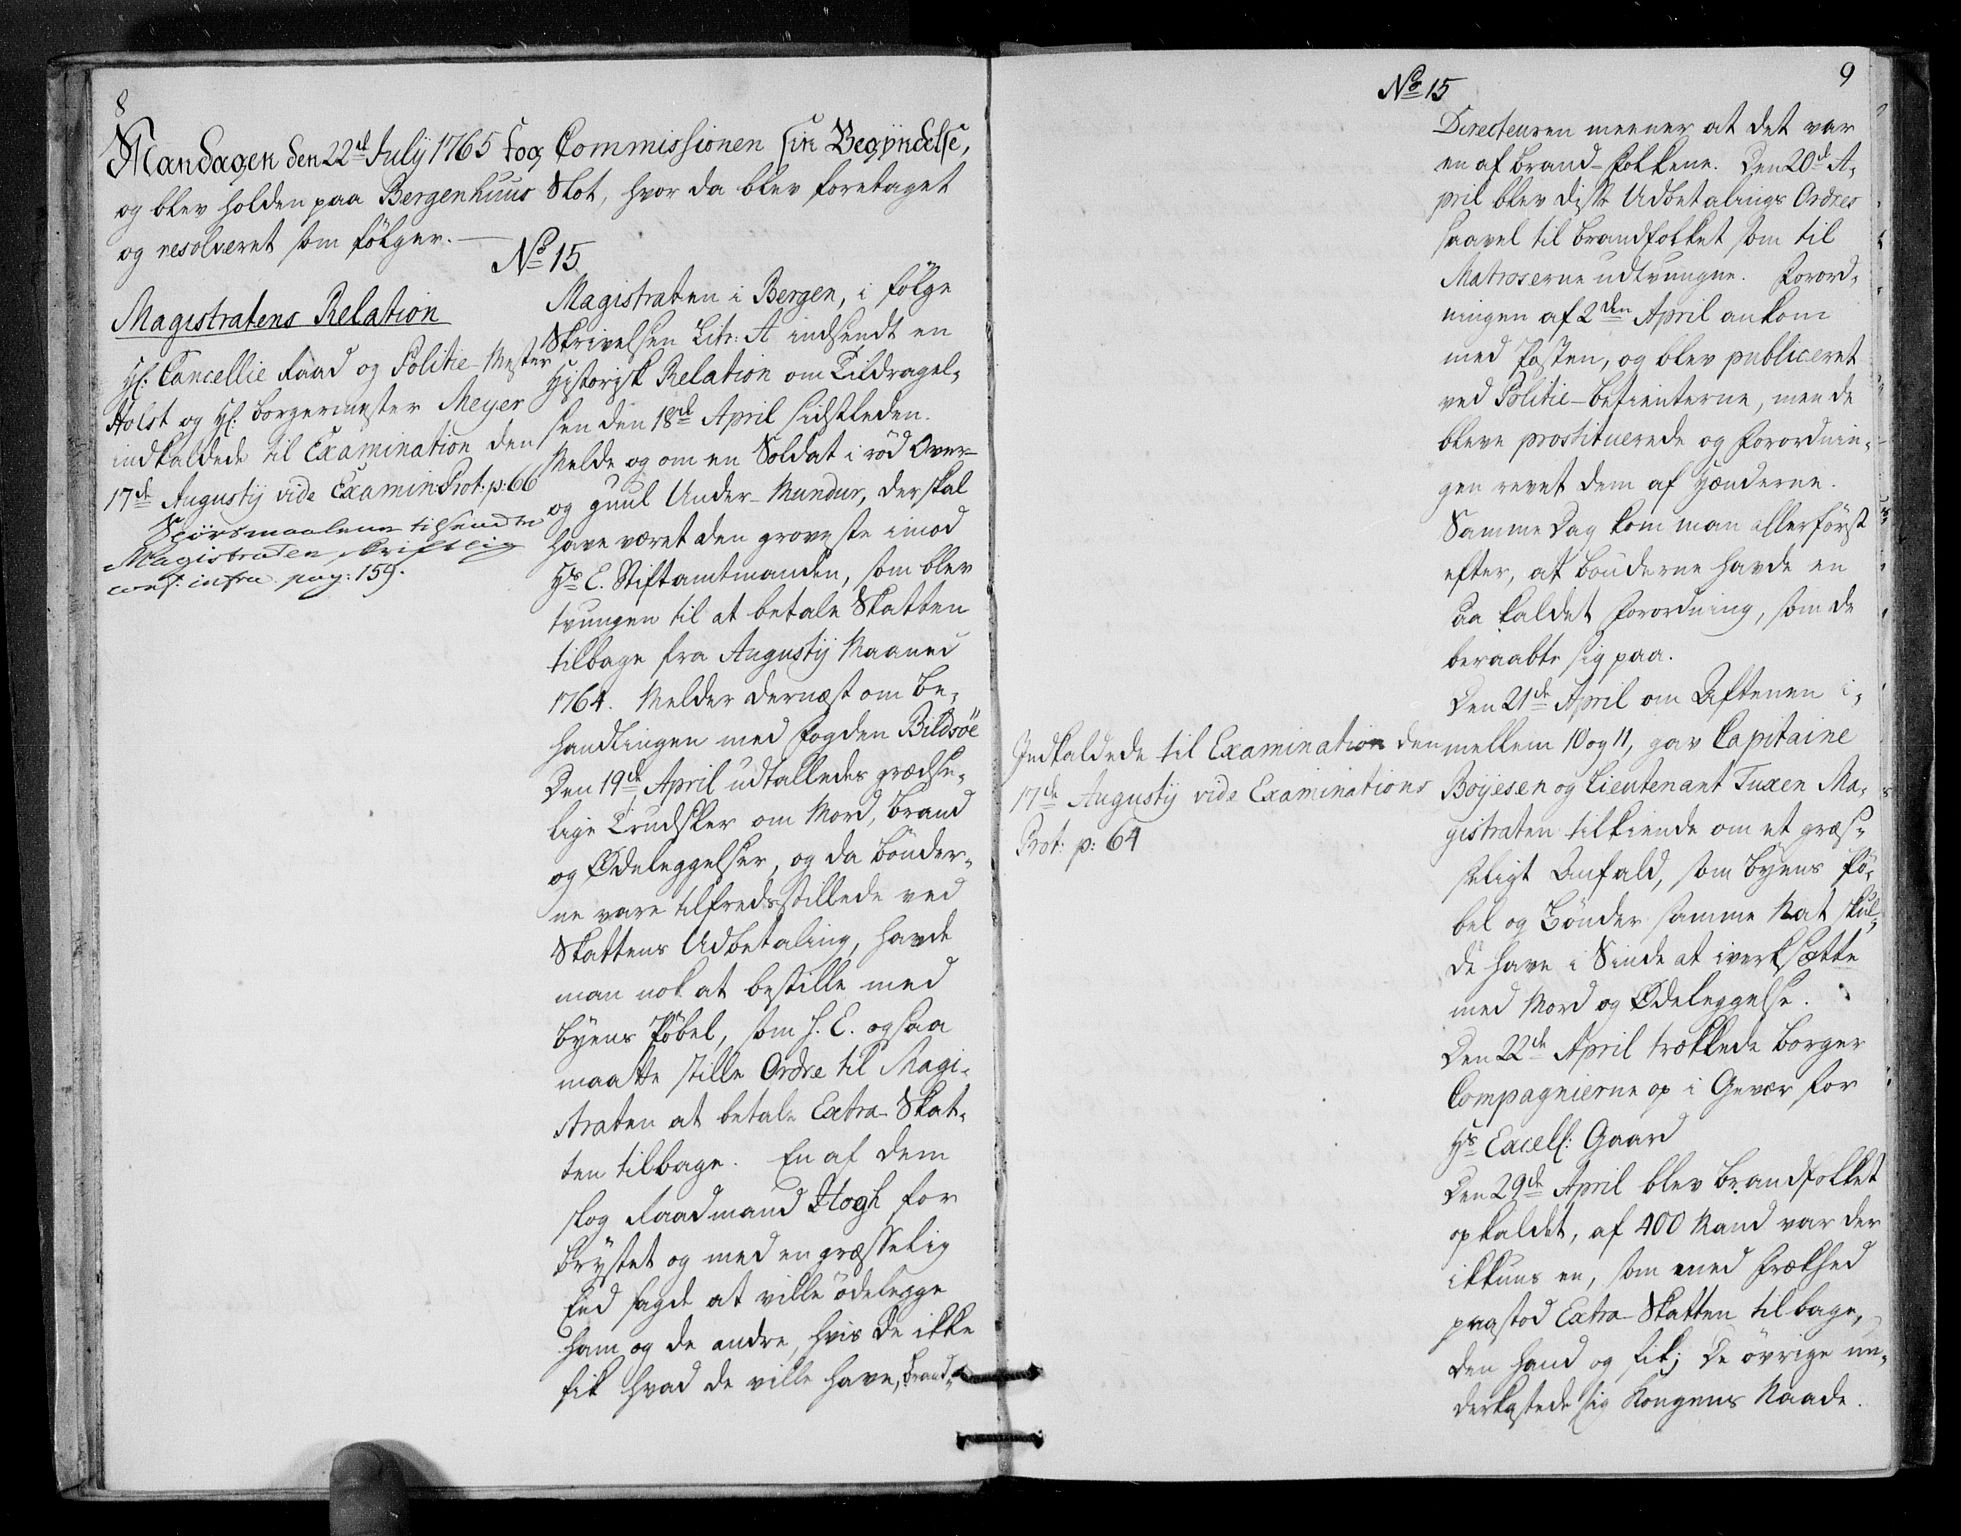 8
Mandagen den 22de July 1765 tog Commissionen sin Begyndelse,
og blev holden paa Bergenhuus Slot, hvor da blev foretaget
og resolveret som følger.
No 15
Magistratens Relation
Hr: Cancellie Raad og Politie-Mester
Holst og Hr: borgermester Meyer
indkaldede til Examination den
17de Augustij vide Examin: Prot: p: 66
Spørsmaalene tilsendte
Magistraten skriftlig
conf: infra pag: 159.
Magistraten i Bergen, i følge
Skrivelsen Litr: A indsendt en
Historisk Relation om Tildragel-
sen den 18de April sidstleden.
Melde og om en Soldat i rød Over-
og guul Under-Mundur, der skal
have været den groveste imod
Hs E. Stiftamtmanden, som blev
tvungen til at betale Skatten
tilbage fra Augustij Maaned
1764. Melder dernæst om be-
handlingen med Fogden Bildsøe
Den 19de April udtalledes grædse-
lige Trudsler om Mord, brand
og Ødeleggelser, og da bønder-
ne vare tilfredsstillede ved
Skattens Udbetaling, havde
man nok at bestille med
byens Pøbel, som H. E. ogsaa
maatte stille Ordre til Magi-
straten at betale Extra-Skat-
ten tilbage. En af dem
slog Raadmand Hogh for
brystet og med en græsselig
Eed sagde at ville ødelegge
ham og de andre, hvis de ikke
fik hvad de ville have, brand-
No 15
9
Directeuren meener at det var
en af brand-folkene. Den 20de A-
pril blev disse Udbetalings Ordres
saavel til brandfolket som til
Matroserne udtvungne. Forord-
ningen af 2den April ankom
med Posten, og blev publiceret
ved Politie-betienterne, men de
bleve prostituerede og Forordnin-
gen revet dem af Hænderne.
Samme Dag kom man allerførst
efter, at bønderne havde en
saa kaldet Forordning, som de
beraabte sig paa.
Den 21de April om Aftenen i-
mellem 10 og 11, gav Capitaine
Böyesen og Lieutenant Tuxen Ma-
gistraten tilkiende om et græs-
seligt Anfald, som byens Pö-
bel og Bønder samme Nat skul-
de have i Sinde at iverksætte
med Mord og Ødeleggelse.
Indkaldede til Examination den
17de Augustij vide Examinations
Prot: p: 64
Den 22de April trækkede borger
Compagnierne op i Gevær for
Hs Excell: Gaard
Den 29de April blev brandfolket
opkaldet, af 400 Mand var der
ikkuns en, som med Frækhed
paastod Extra-Skatten tilbage,
den hand og fik; de øvrige un-
derkastede sig Kongens Naade.